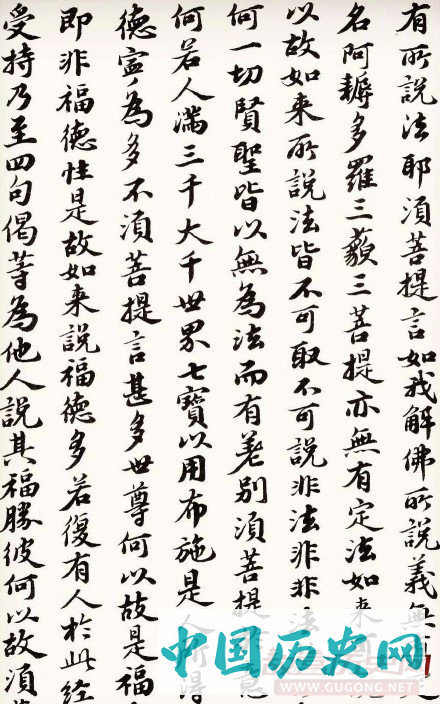 有所說法耶須菩提言如我解佛所說義無
名阿耨多羅三藐三菩提亦無有定法如来
以故如来所說法皆不可取不可說非法非非
何一切賢聖皆以無為法而有差別須菩提
何若人滿三千大千世界七寶以用布施是人所得
德寧為多不須菩提言甚多世尊何以故是福
即非福德性是故如来說福德多若復有人於此経
受持乃至四句偈等為他人說其福勝彼何以故須
中国历史网
WWW.GUGONG.NET